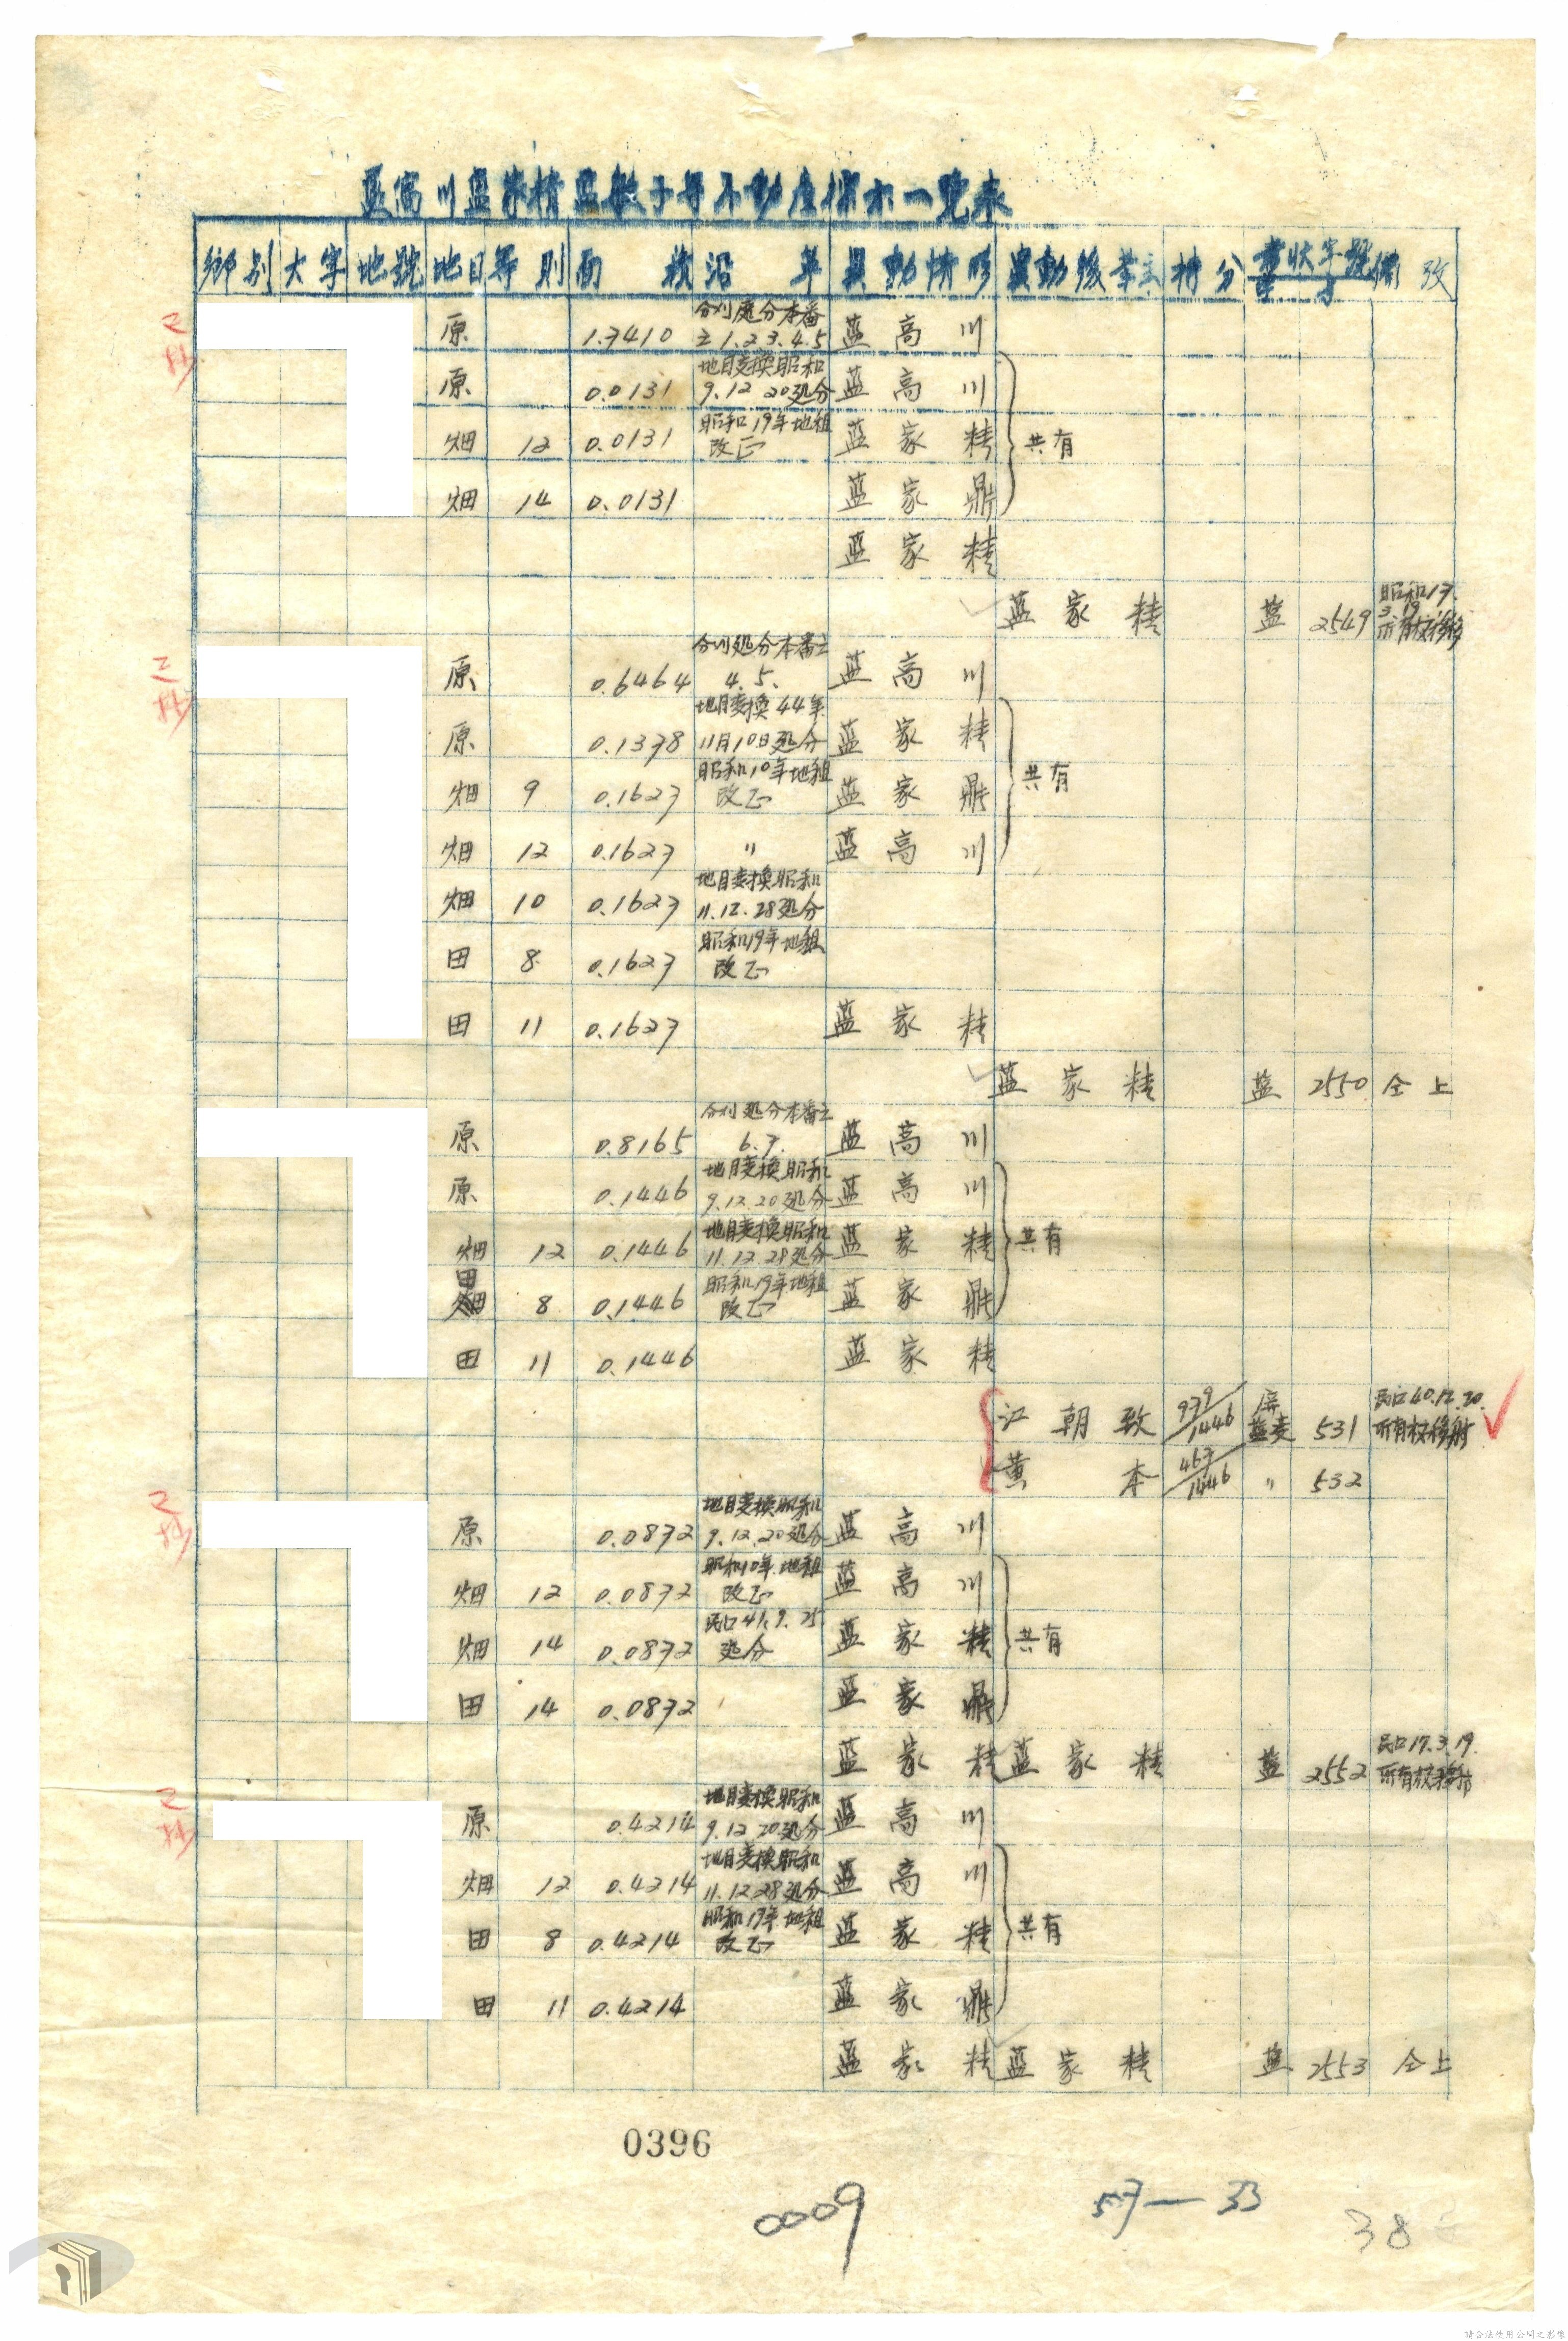 藍高川藍家精藍敏子等不動產保木一覽表
鄉別 大字 地號 地目 等則 面積 沿革 異動情形 異動後業主 持分 書狀字號 備攷
二抄 原 1.7410 分刈処分本番之1.2.3.4.5 藍高川
原 0.0131 地目変換昭和9.12.20処分 藍高川
畑 12 0.0131 昭和19年地租改正 藍家精 共有
畑 14 0.0131 藍家鼎
藍家精
藍家精 藍 2549 昭和17.3.19所有权移転
二抄 原 0.6464 分刈処分本番之4.5. 藍高川
原 0.1378 地目変換44年11月10日処分 藍家精
畑 9 0.1627 昭和10年地租改正 藍家鼎 共有
畑 12 0.1627 〃 藍高川
畑 10 0.1627 地目変換昭和11.12.28処分
田 8 0.1627 昭和19年地租改正
田 11 0.1627 藍家精
藍家精 藍 2550 仝上
原 0.8165 分刈処分本番之6.7. 藍高川
原 0.1446 地目変換昭和9.12.20処分 藍高川
畑 12 0.1446 地目変換昭和11.12.28処分 藍家精 共有
田 8 0.1446 昭和19年地租改正 藍家鼎
田 11 0.1446 藍家精
江朝致 979/1446 屏藍麦 531 民口40.12.20.所有权移転
黄本 467/1446 〃 532
二抄 原 0.0872 地目変換昭和9.12.20処分 藍高川
畑 12 0.0872 昭和10年地租改正 藍高川
畑 14 0.0872 民口41.9.25処分 藍家精 共有
田 14 0.0872 藍家鼎
藍家精 藍家精 藍 2552 民口17.3.19.所有权移転
二抄 原 0.4214 地目変換昭和9.12.20処分 藍高川
畑 12 0.4214 地目変換昭和11.12.28処分 藍高川
田 8 0.4214 昭和19年地租改正 藍家精 共有
田 11 0.4214 藍家鼎
藍家精 藍家精 藍 2553 仝上
0396
0009
57—33
38
請合法使用公開之影像